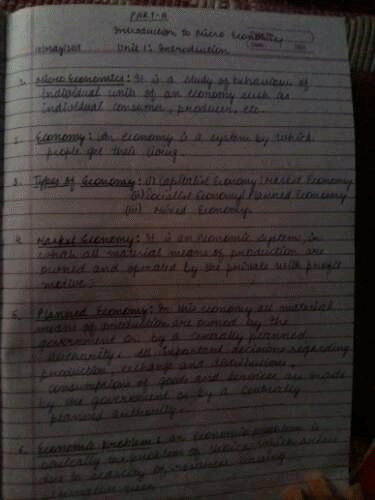 PART-A
Introduction to Micro Economics
Unit 1: Introduction
1. Micro Economics: It is a study of behaviour of
individual units of an economy such as
individual consumer, producer, etc.
2. Economy: An economy is a system by which
people get their living.
3. Types of Economy: (i) Capitalist Economy/Market Economy
(ii) Socialist Economy/Planned Economy
(iii) Mixed Economy.
4. Market Economy: It is an economic system, in
which all material means of production are
owned and operated by the private with profit
motive.
5. Planned Economy: In this economy all material
means of production are owned by the
government or by a centrally planned
authority. All important decisions regarding
production, exchange and distribution,
consumption of goods and services are made
by the government or by a centrally
planned authority.
6. Economic problem: An Economic problem is
basically the problem of choice which arises
due to scarcity of resources having
alternative uses.